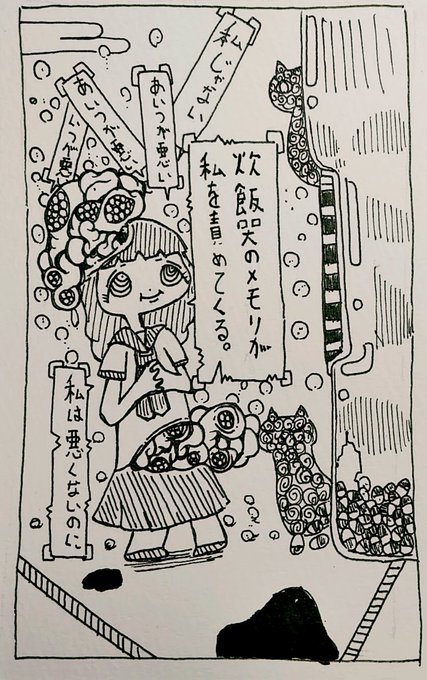 炊飯器のメモリが
私を責めてくる。
私じゃない
あいつが悪い
あいつが悪い
いつが悪
私は悪くないのに